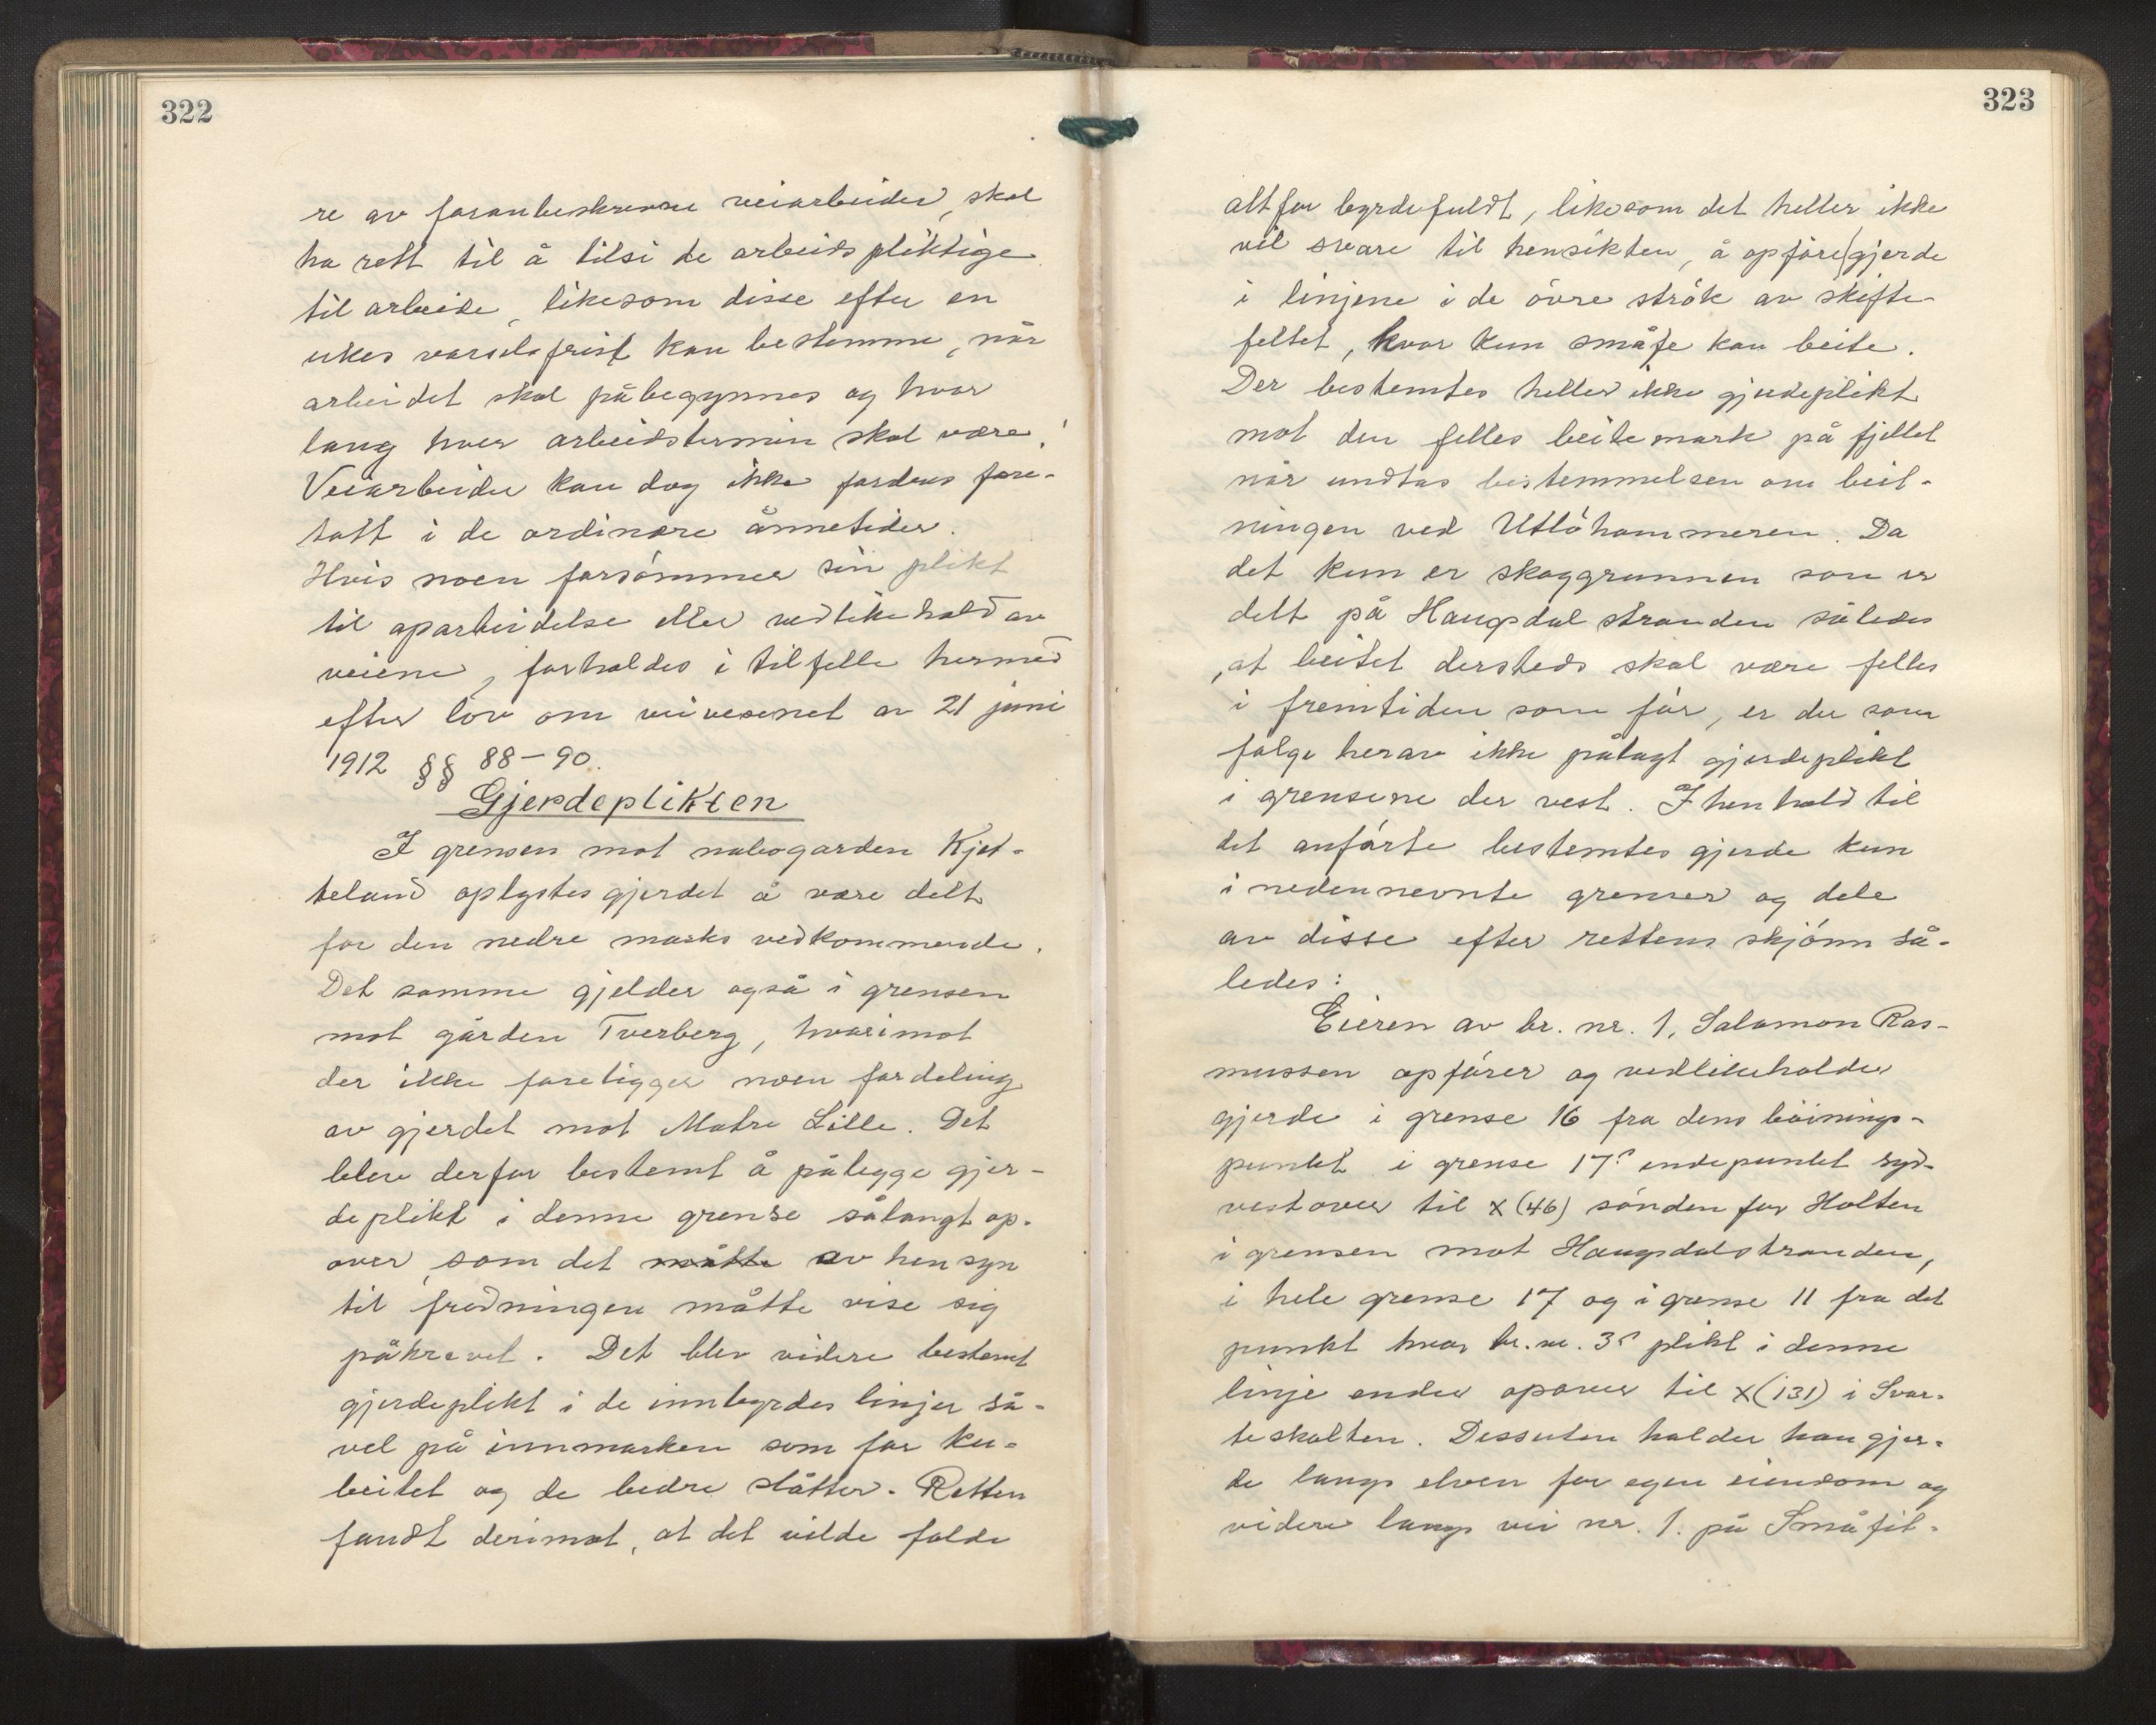 322
re av foranbeskrevne veiarbeider, skal
ha rett til å tilsi de arbeidspliktige
til arbeide, likesom disse efter en
ukes varselsfrist kan bestemme, når
arbeidet skal påbegynnes og hvor
lang hver arbeidstermin skal være.
Veiarbeider kan dog ikke fordres fore-
tatt i de ordinære ånnetider.
Hvis noen forsömmer sin plikt
til oparbeidelse eller vedlikehold av
veiene, forholdes i tilfelle hermed
efter lov om veivesenet av 21 juni
1912 §§ 88-90.
Gjerdeplikten
I grensen mot nabogarden Kjet-
teland oplystes gjerdet å være delt
for den nedre marks vedkommende.
Det samme gjelder også i grensen
mot gården Tverberg, hvorimot
der ikke foreligger noen fordeling
av gjerdet mot Matre Lille. Det
blev derfor bestemt å pålegge gjer-
deplikt i denne grense sålangt op-
over, som det måtte av hensyn
til fredningen måtte vise sig
påkrevet. Det blev videre bestemt
gjerdeplikt i de innbyrdes linjer så-
vel på innmarken som for ku-
beitet og de bedre slåtter. Retten
fandt derimot, at det vilde falde
323
altfor byrdefuldt, likesom det heller ikke
vil svare til hensikten, å opföre gjerde
i linjene i de övre strök av skifte-
feltet, hvor kun småfe kan beite.
Der bestemtes heller ikke gjerdeplikt
mot den felles beitemark på fjellet
når undtas bestemmelsen om beit-
ningen ved Utlöhammeren. Da
det kun er skoggrunnen som er
delt på Haugsdalstranden således
, at beitet dersteds skal være felles
i fremtiden som för, er der som
fölge herav ikke pålagt gjerdeplikt
i grensene der vest. I henhold til
det anförte bestemtes gjerde kun
i nedennevnte grenser og dele
av disse efter rettens skjönn så-
ledes:
Eieren av br. nr. 1, Salamon Ras-
mussen opförer og vedlikeholder
gjerde i grense 16 fra dens böinings-
punkt i grense 17s endepunkt syd-
vestover til x (46) sönden for Holten
i grensen mot Haugsdalstranden,
i hele grense 17 og i grense 11 fra det
punkt hvor br. nr. 3s plikt i denne
linje ender opover til x (131) i Svar-
teskolten. Dessuten holder han gjer-
de langs elven for egen eiendom og
videre langs vei nr. 1. på Småfit-